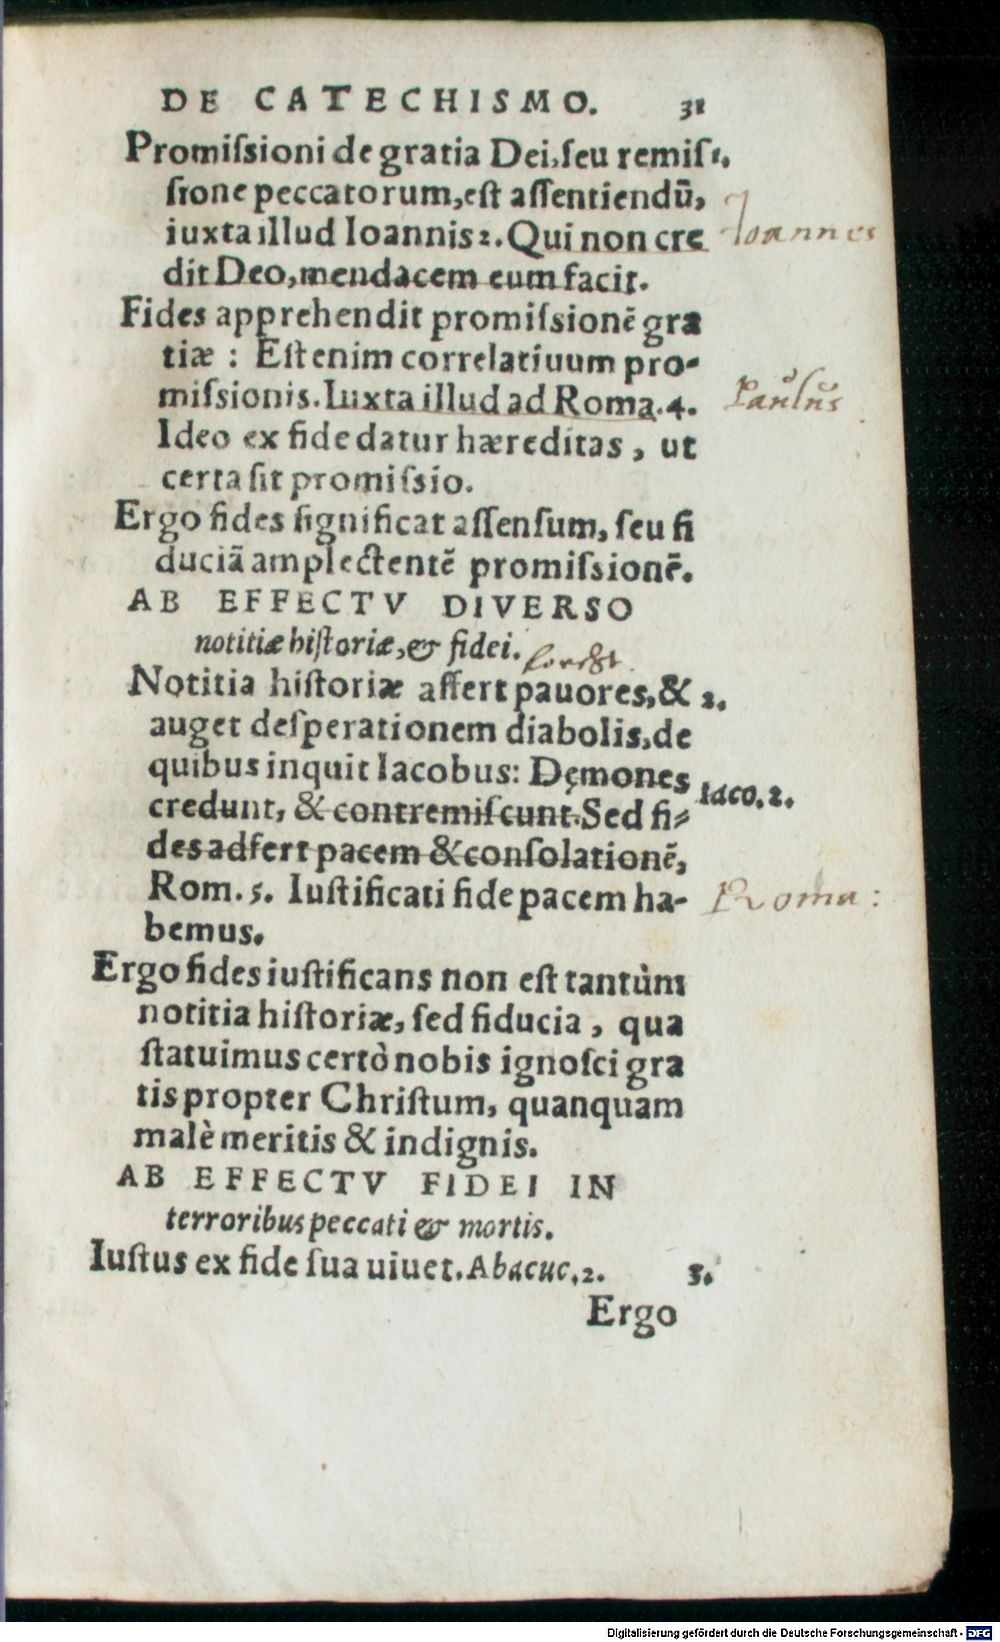 DE CATECHISMO. 31
Promiſsioni de gratia Dei, ſeu remiſ 1.
ſione peccatorum, est aſſentiendū,
iuxta illud Ioannis 2. Qui non cre Joannes
dit Deo, mendacem eum facit.
Fides apprehendit promiſsionē gra
tiæ : Est enim correlatiuum pro-
miſsionis. Iuxta illud ad Roma. 4. Paulus
Ideo ex fide datur hæreditas, ut
certa ſit promiſsio.
Ergo fides ſignificat aſſenſum, ſeu fi
duciā amplectentē promiſsionē.
AB EFFECTV DIVERSO
notitiæ hiſtoriæ, & fidei.
Notitia hiſtoriæ affert pauores, & 2.
auget deſperationem diabolis, de
quibus inquit Iacobus: Dęmones Iaco. 2.
credunt, & contremiſcunt. Sed fi-
des adfert pacem & conſolationē,
Rom. 5. Iuſtificati fide pacem ha- Roma:
bemus.
Ergo fides iuſtificans non eſt tantùm
notitia hiſtoriæ, ſed fiducia, qua
ſtatuimus certò nobis ignoſci gra
tis propter Chriſtum, quanquam
malè meritis & indignis.
AB EFFECTV FIDEI IN
terroribus peccati & mortis.
Iuſtus ex fide ſua uiuet. Abacuc. 2. 3.
Ergo
Digitalisierung gefördert durch die Deutsche Forschungsgemeinschaft - DFG